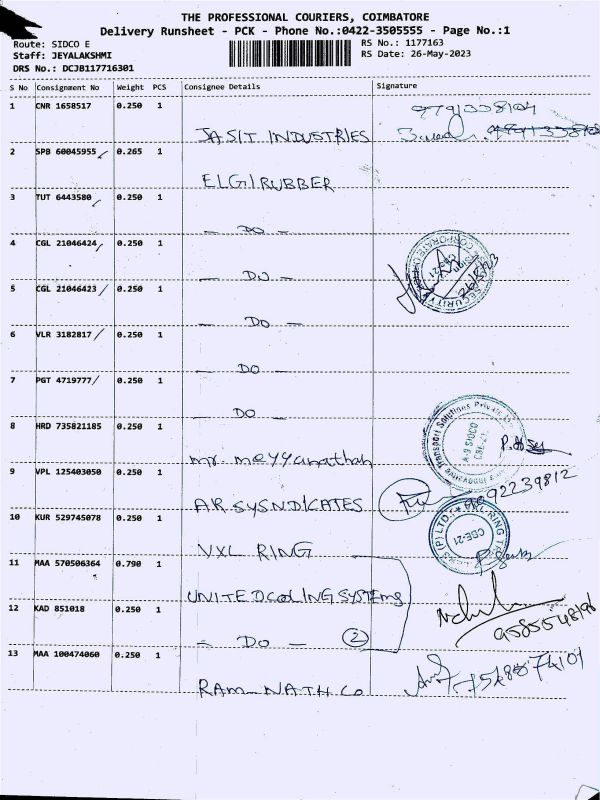 THE PROFESSIONAL COURIERS, COIMBATORE
Delivery Runsheet - PCK - Phone No.:0422-3505555 - Page No.:1
Route: SIDCO E
Staff: JEYALAKSHMI
DRS No.: DCJB117716301
RS No.: 1177163
RS Date: 26-May-2023
S No Consignment No Weight PCS Consignee Details Signature
1 CNR 1658517 0.250 1
JASIT INDUSTRIES
2 SPB 60045955 0.265 1
ELGI RUBBER
3 TUT 6443580 0.250 1
- DO -
4 CGL 21046424 0.250 1
- DO -
5 CGL 21046423 0.250 1
- DO -
6 VLR 3182817 0.250 1
- DO -
7 PGT 4719777 0.250 1
- DO -
8 HRD 735821185 0.250 1
mr. meyyanathan
9 VPL 125403050 0.250 1
AR SYSNDICATES
10 KUR 529745078 0.250 1
VXL RING
11 MAA 570506364 0.790 1
UNITED COOLING SYSTEMS
12 KAD 851018 0.250 1
- DO - 2
13 MAA 100474060 0.250 1
RAM NATH CO